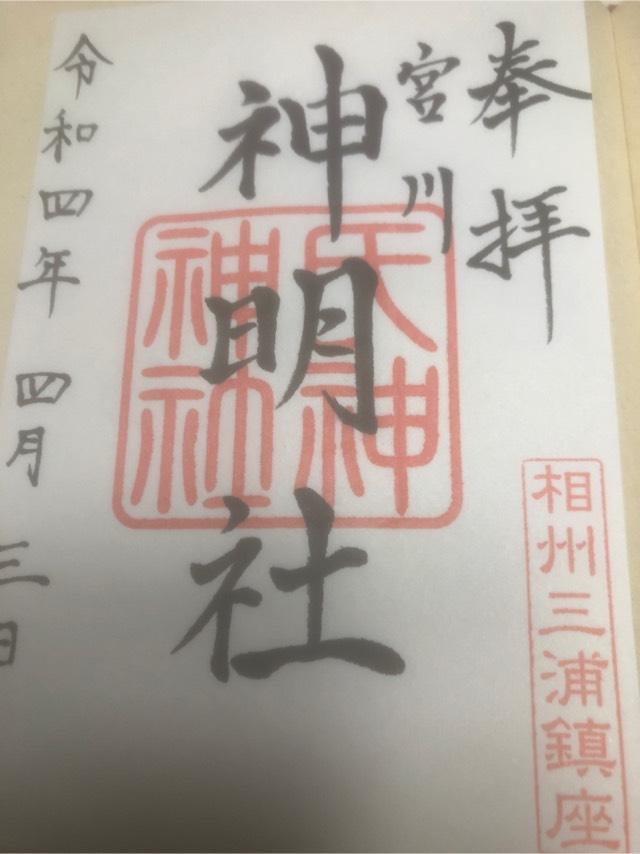 奉拝
相州三浦鎮座
宮川
神明社
天神
神社
令和四年 四月 三日